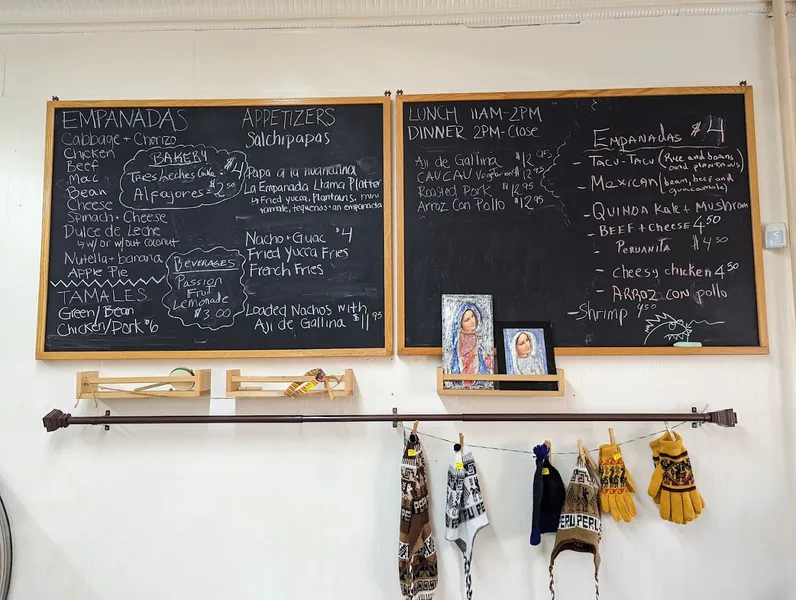 EMPANADAS
Cabbage + Chorizo
Chicken
Beef
Mac
Bean
Cheese
Spinach + Cheese
Dulce de Leche
↳ w/ or w/out coconut
Nutella + banana
Apple Pie
TAMALES
Green/Bean
Chicken/Pork $6
BAKERY
Tres Leches Cake - $4
Alfajores = 2.50
BEVERAGES
Passion
Fruit
Lemonade
$3.00
APPETIZERS
Salchipapas
Papa a la huancaina
La Empanada Llama Platter
↳ Fried yucca, Plantains, mini
tamale, tequenos + an empanada
Nacho + Guac $4
Fried Yucca Fries
French Fries
Loaded Nachos with
Aji de Gallina $11.95
LUNCH 11AM-2PM
DINNER 2PM-Close
Aji de Gallina $12.95
CAUCAU $12.95
Roasted Pork $12.95
Arroz Con Pollo $12.95
EMPANADAS $4
- TACU-TACU (Rice and beans
and plantains)
- MEXICAN (beans, beef and
guacamole)
- QUINOA Kale + MUSHROOM
- BEEF + CHEESE 4.50
- PERUANITA $4.50
- cheesy chicken 4.50
- ARROZ con pollo
- Shrimp 4.50
PERU
PERU PERU